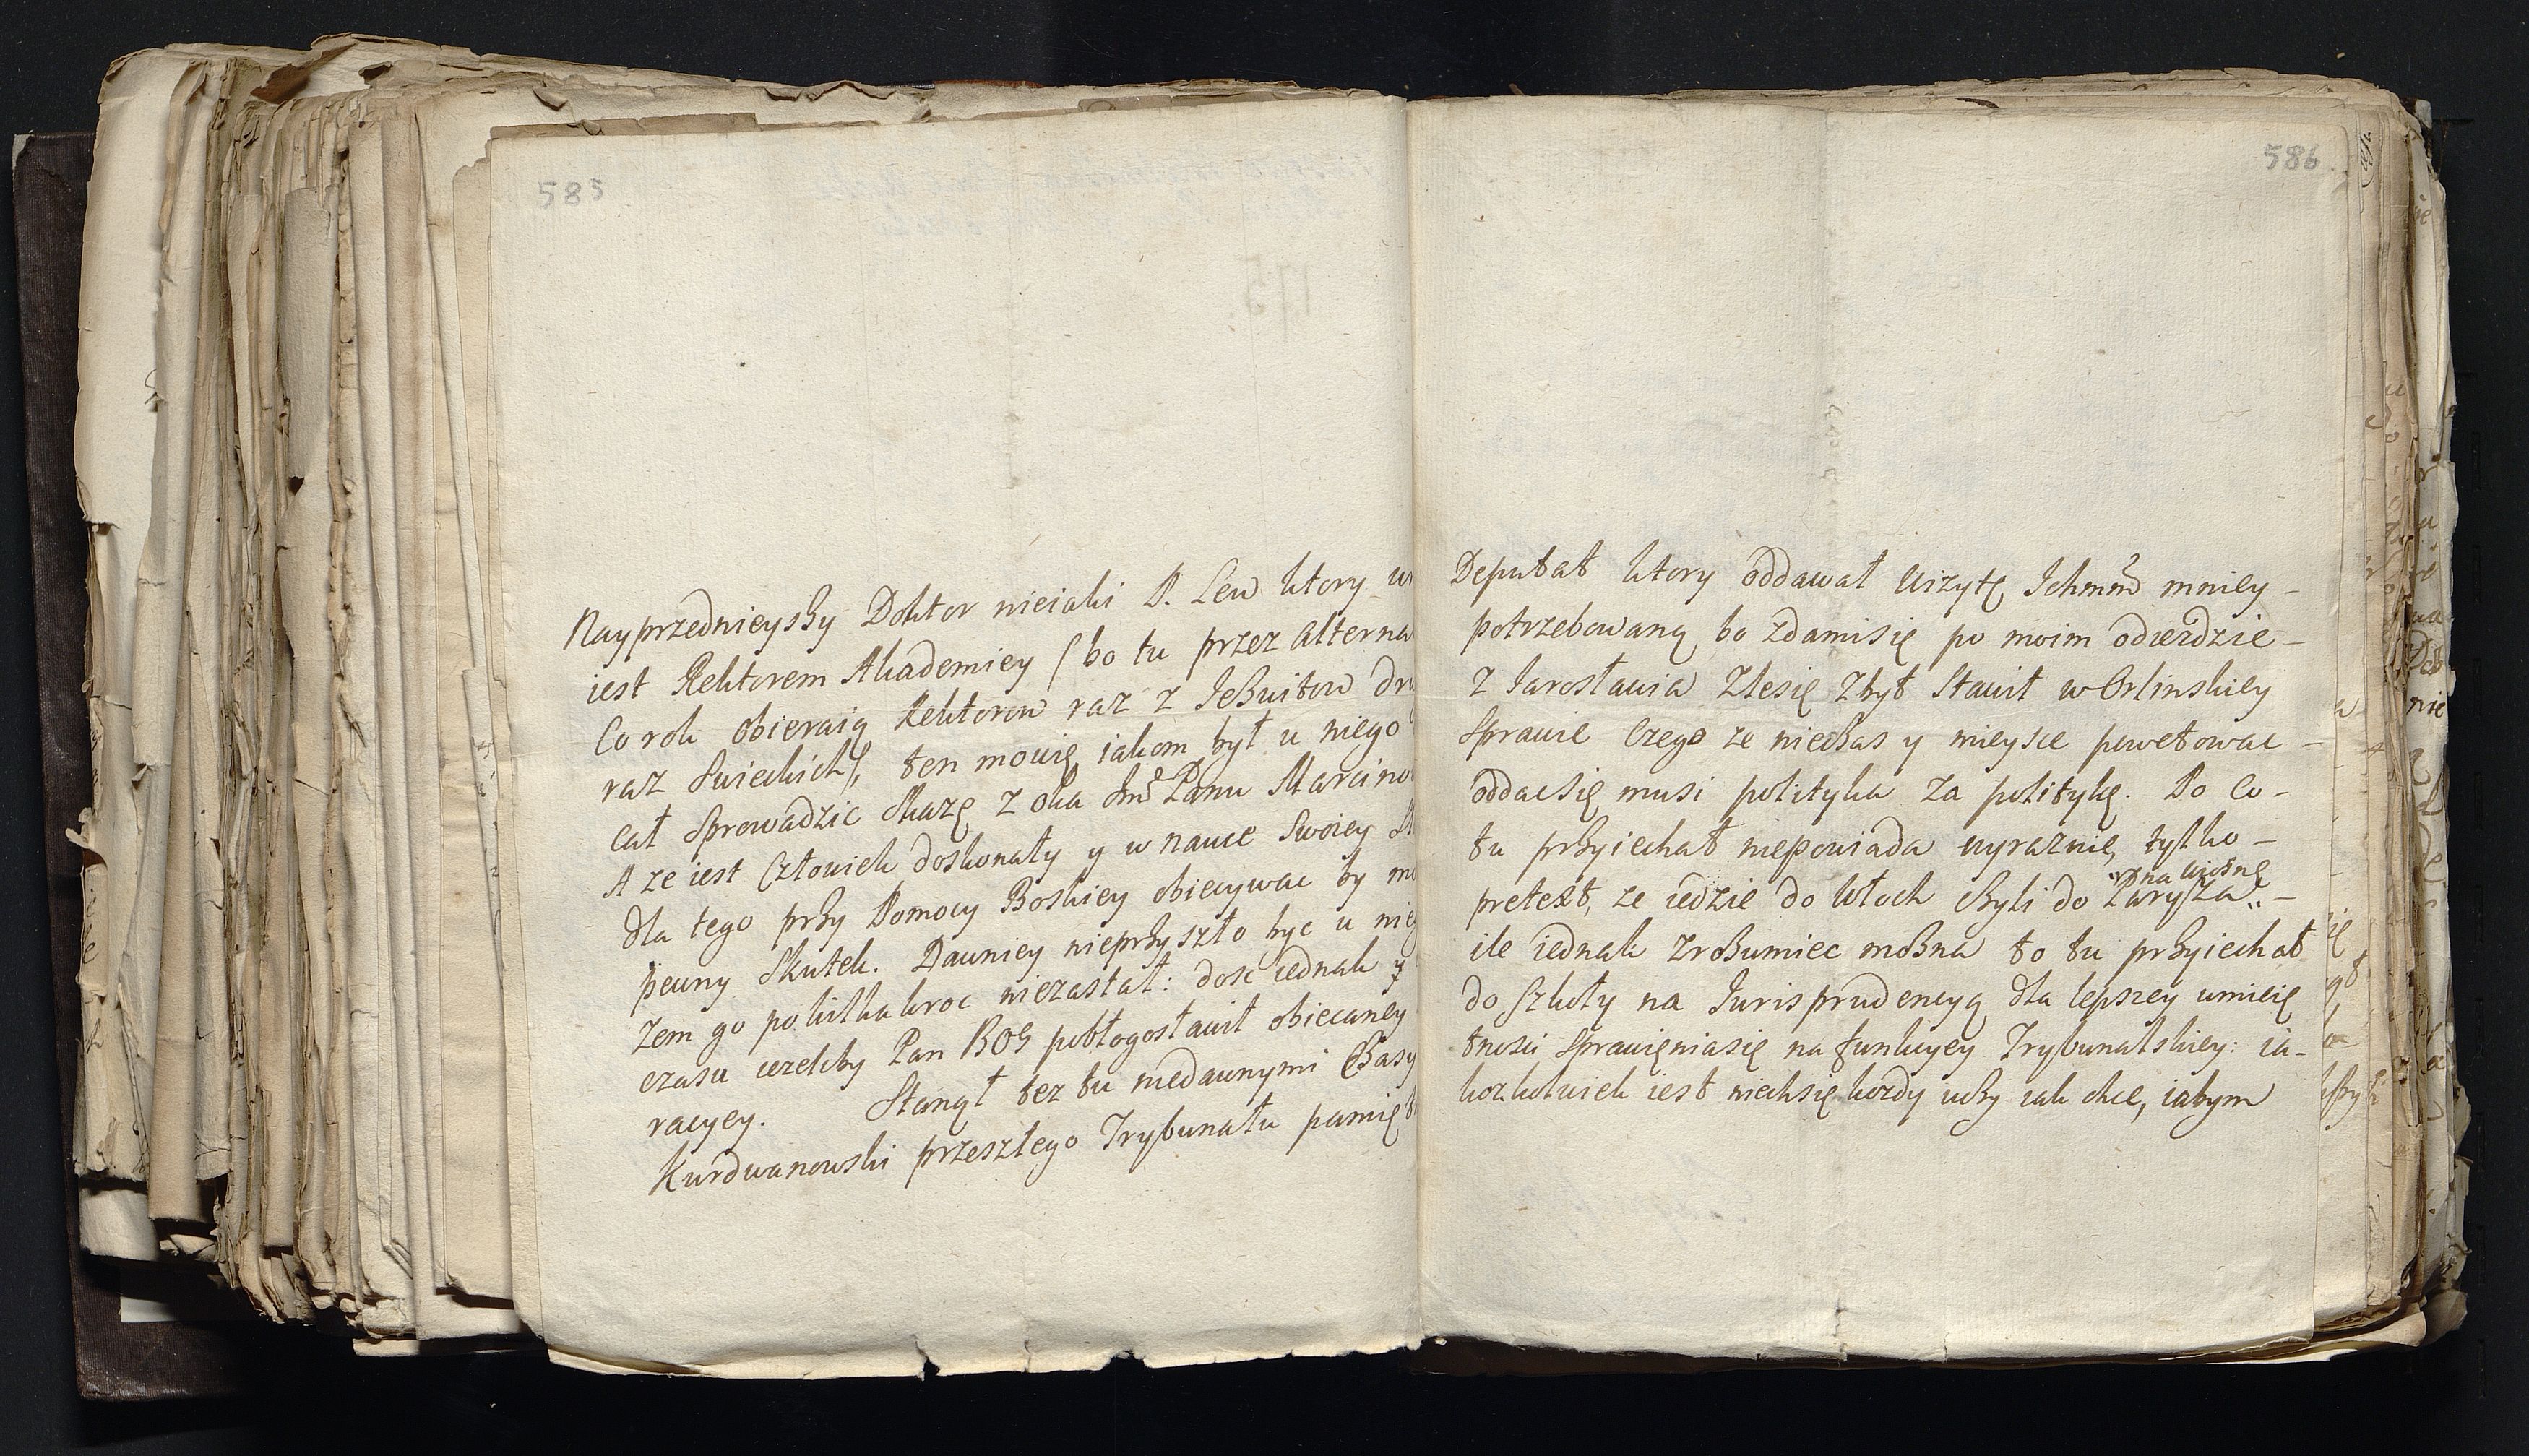 585
Nayprzednieyszy Doktor nieiaki P. Lew ktory
iest Rektorem Akademiey (bo tu przez alterna
Co rok obieraią Rektorow raz z Jezuitow dru
raz Swieckich), ten mowię iakom był u niego
cał Sprowadzic Skazę z oka Jmci Panu Marcino
A ze iest Człowiek doskonały y w nauce Swoiey
dla tego przy Pomocy Boskiey obiecywac by mo
pewny Skutek. Dawniey nieprzyszło byc u nieg
zem go po kilka kroc niezastał: dosc iednak y
czasu iezeliby Pan BOG pobłogosławił obiecaney
racyey. Stanął tez tu niedawnymi Czasy
Kurdwanowski przeszłego Trybunału pamięt
586
Deputat ktory oddawał Wizytę Ichmm mniey -
potrzebowaną bo zdamisię po moim odiezdzie -
z Jarosławia Zlesię Zbyt Stawił w Orlinskiey
Sprawie Czego ze nieczas y mieysce powetowac -
oddacsię musi polityka za politykę. Po Co -
tu przyiechał niepowiada wyraznie, tylko -
na wiosnę
pretext, ze iedzie do Włoch Czyli do Paryza -
ile iednak zrozumiec mozna to tu przyiechał
do Szkoły na Jurisprudencyą dla lepszey umieię
tnosci Sprawięniasię na funkcyey Trybunalskiey: ia-
kozkolwiek iest niechsię kozdy uczy iak chce, iabym